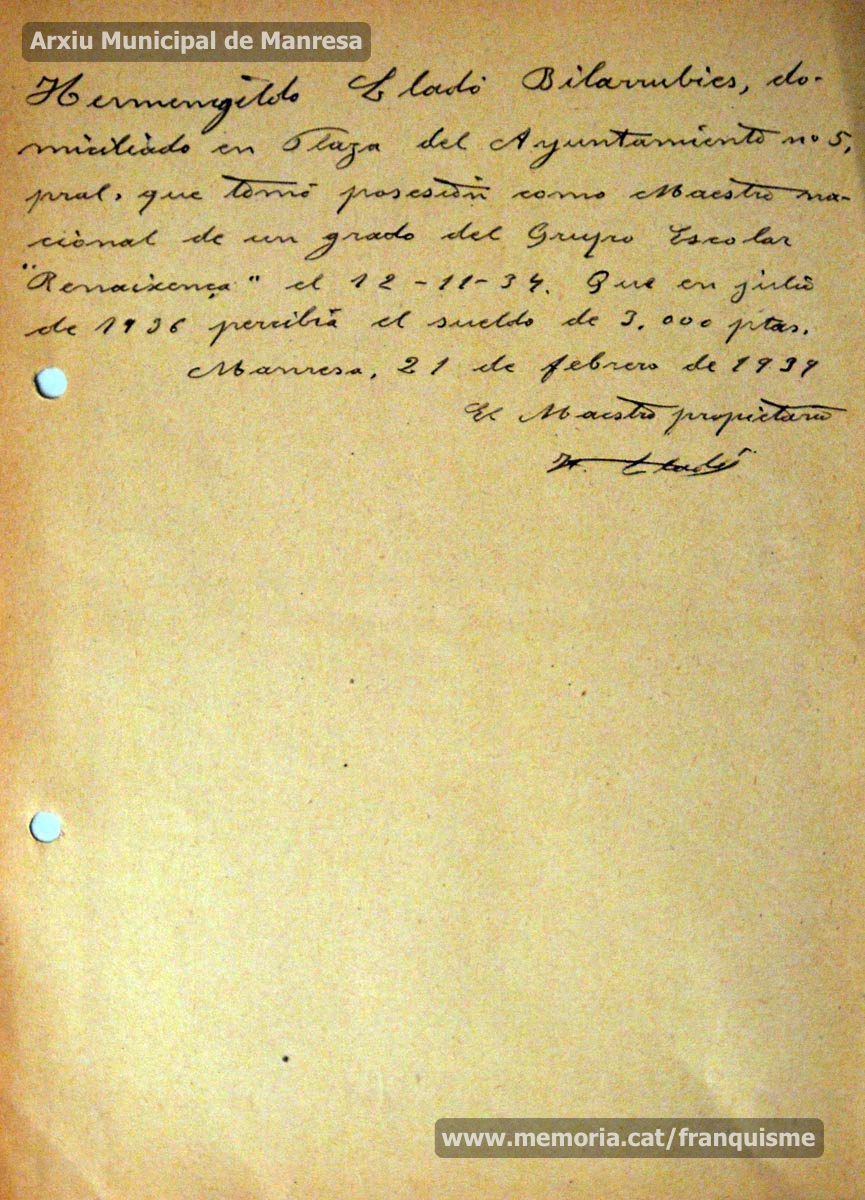 Arxiu Municipal de Manresa
Hermenegildo Lladó Bilarrubies, do-
miciliado en Plaza del Ayuntamiento nº 5,
pral. que tomó posesión como Maestro na-
cional de un grado del Grupo Escolar
"Renaixença" el 12-11-34. Que en julio
de 1936 percibia el sueldo de 3.000 ptas.
Manresa, 21 de febrero de 1939
El Maestro propietario
H. Lladó
www.memoria.cat/franquisme